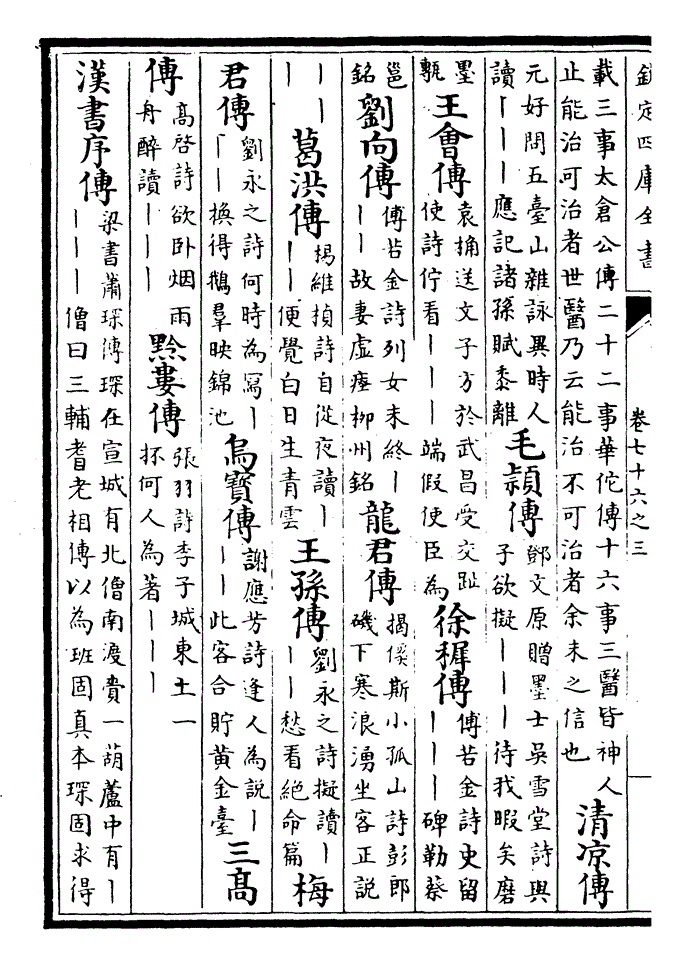 欽定四庫全書
卷七十六之三
載三事太倉公傳二十二事華佗傳十六事三醫皆神人
止能治可治者世醫乃云能治不可治者余未之信也
清凉傳
元好問五臺山雜詠異時人
讀｜｜｜應記諸孫賦黍離
毛頴傳
鄧文原贈墨士吳雪堂詩與
子欲擬｜｜｜待我暇矣磨
墨
甎
王會傳
袁桷送文子方於武昌受交趾
使詩佇看｜｜｜端假使臣為
徐穉傳
傅若金詩史留
｜｜｜碑勒蔡
邕
銘
劉向傳
傅若金詩列女未終｜
｜｜故妻虛瘞柳州銘
龍君傳
揭傒斯小孤山詩彭郎
磯下寒浪湧坐客正説
｜｜
｜
葛洪傳
楊維楨詩自從夜讀｜
｜｜便覺白日生青雲
王孫傳
劉永之詩擬讀｜
｜｜愁看絶命篇
梅
君傳
劉永之詩何時為寫｜
｜｜換得鵝羣映錦池
烏寳傳
謝應芳詩逢人為説｜
｜｜此客合貯黄金臺
三髙
傳
髙啓詩欲卧烟雨
舟醉讀｜｜｜
黔婁傳
張羽詩李子城東土一
抔何人為著｜｜｜
漢書序傳
梁書蕭琛傳琛在宣城有北僧南渡賷一葫蘆中有｜
｜｜｜僧曰三輔耆老相傳以為班固真本琛固求得